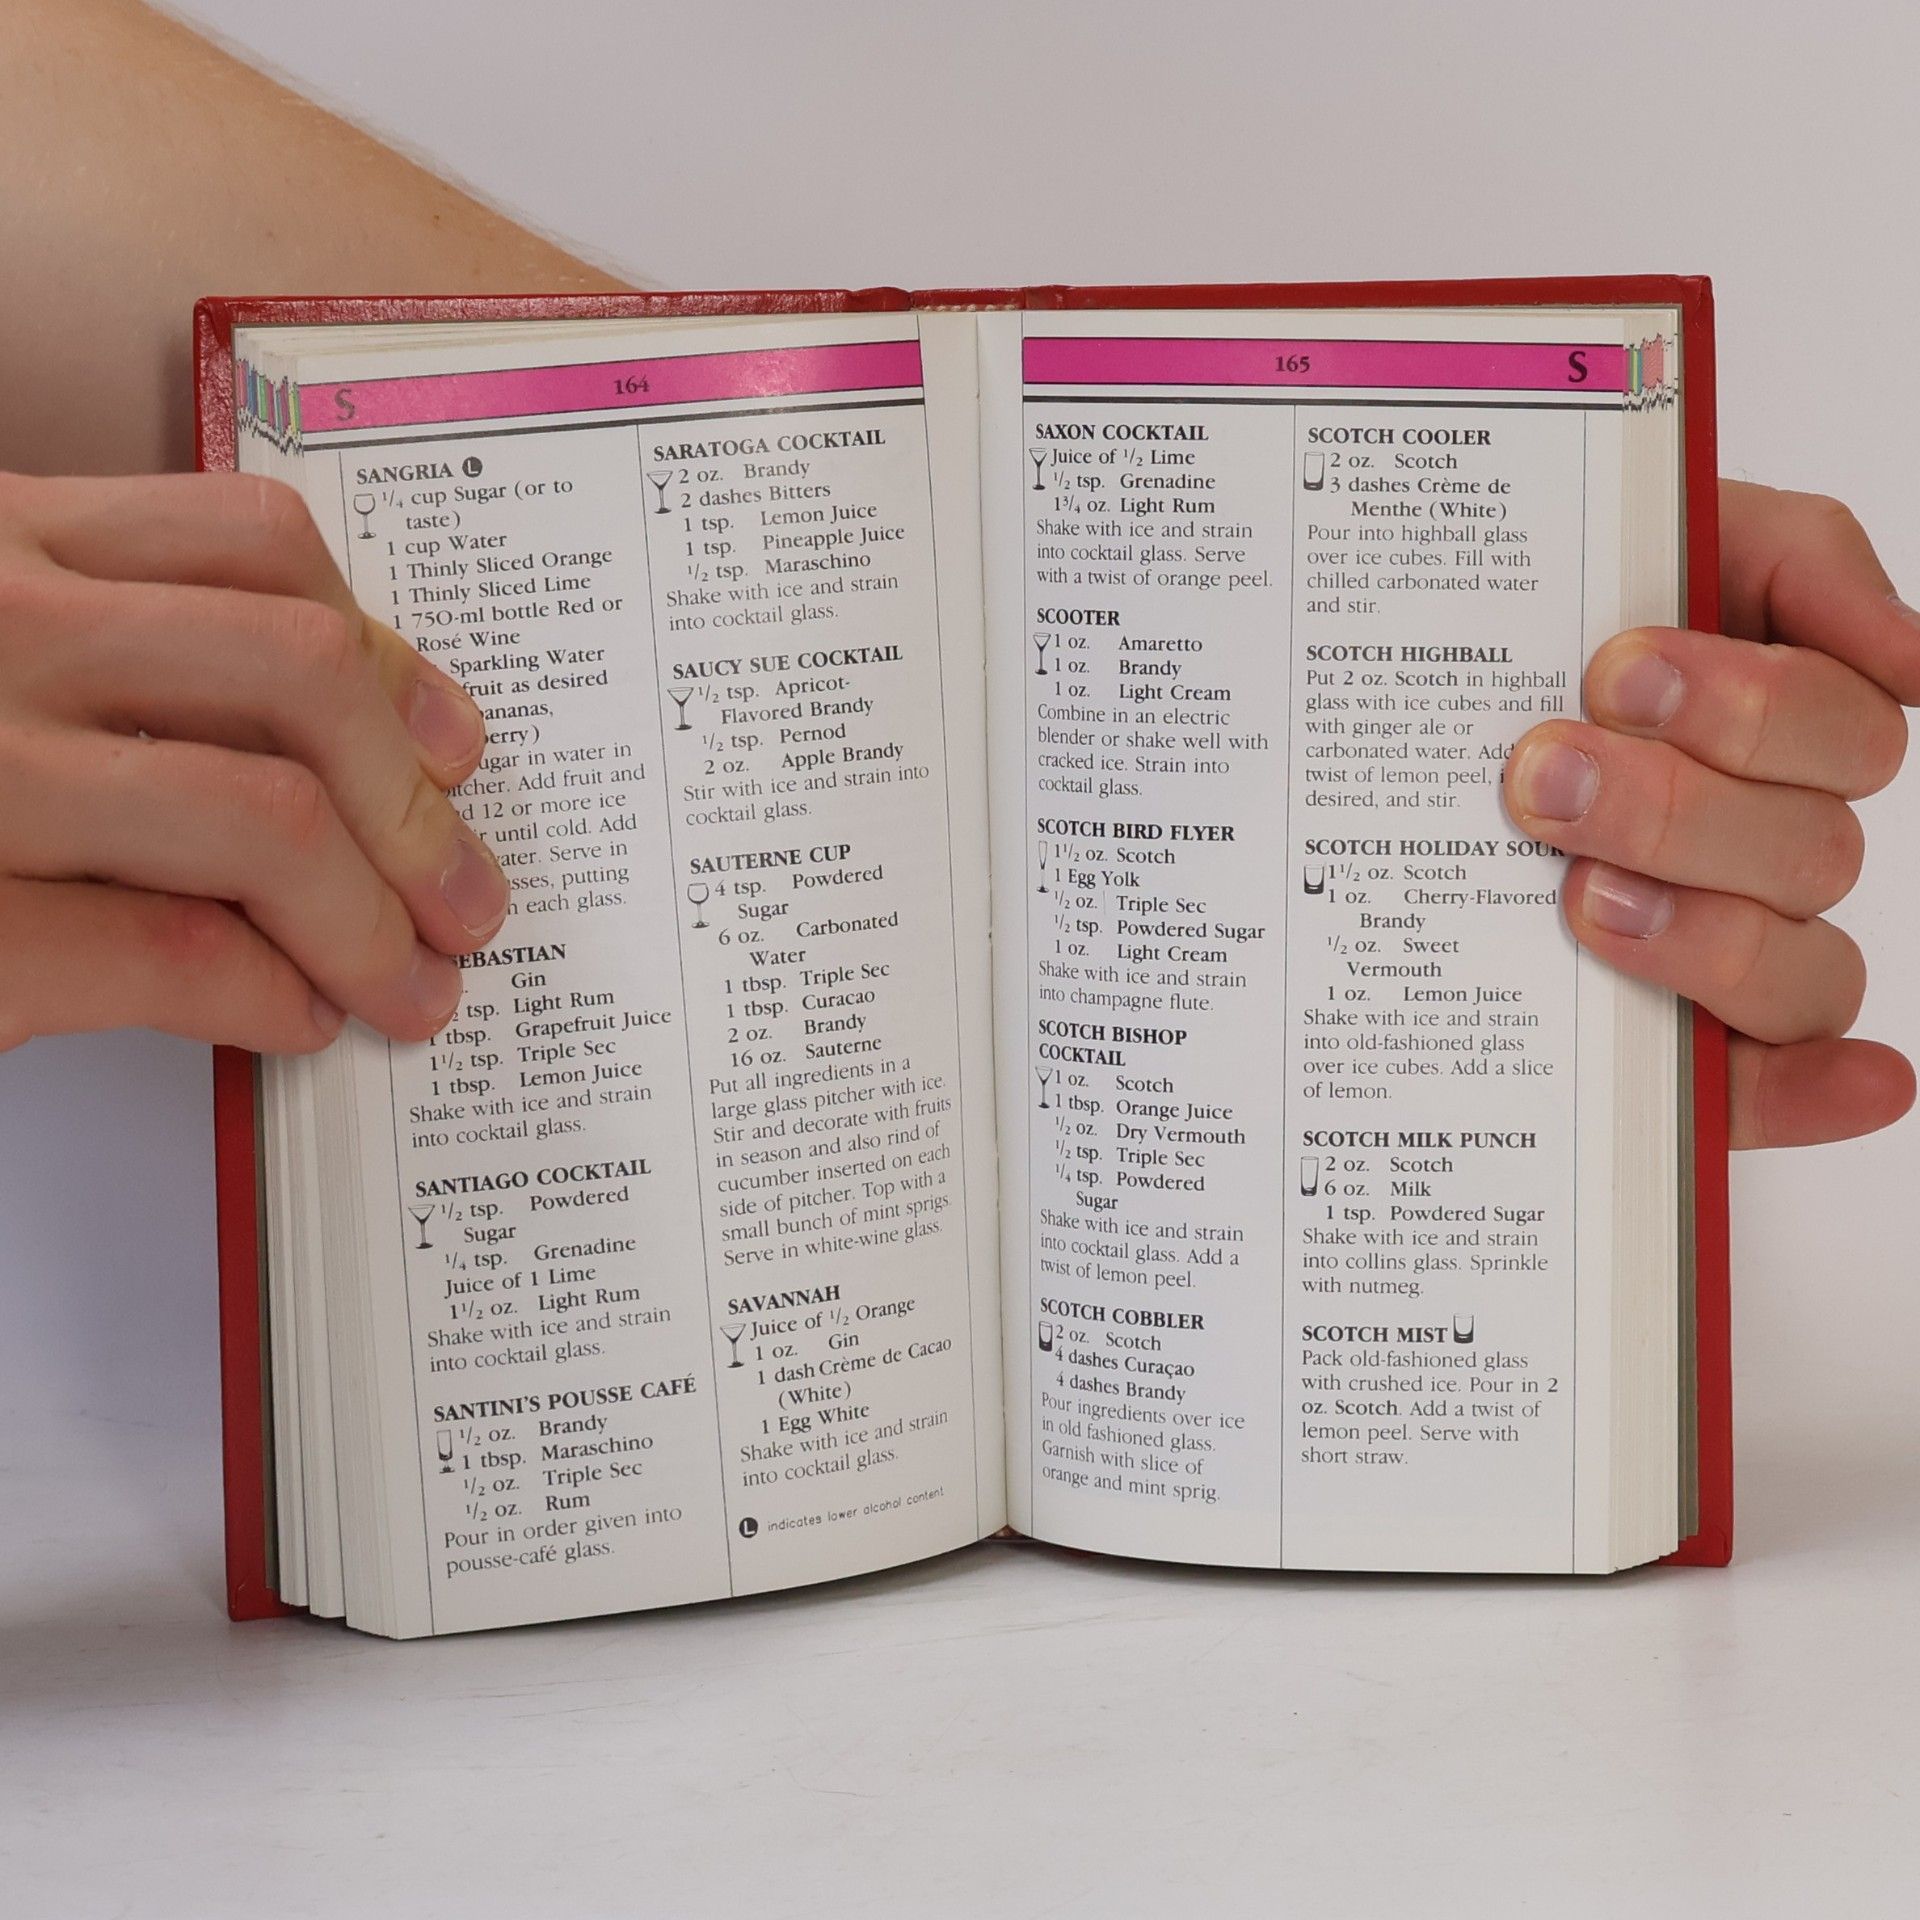 S
164
SANGRIA L
1/4 cup Sugar (or to
taste)
1 cup Water
1 Thinly Sliced Orange
1 Thinly Sliced Lime
1 750-ml bottle Red or
Rosé Wine
Sparkling Water
fruit as desired
in water in
Add fruit and
12 or more ice
until cold. Add
Serve in
putting
each glass.
Gin
tsp. Light Rum
1 tbsp. Grapefruit Juice
1 1/2 tsp. Triple Sec
1 tbsp. Lemon Juice
Shake with ice and strain
into cocktail glass.
SANTIAGO COCKTAIL
1/2 tsp. Powdered
Sugar
1/4 tsp. Grenadine
Juice of 1 Lime
1 1/2 oz. Light Rum
Shake with ice and strain
into cocktail glass.
SANTINI'S POUSSE CAFÉ
1/2 oz. Brandy
1 tbsp. Maraschino
1/2 oz. Triple Sec
1/2 oz. Rum
Pour in order given into
pousse-café glass.
SARATOGA COCKTAIL
2 oz. Brandy
2 dashes Bitters
1 tsp. Lemon Juice
1 tsp. Pineapple Juice
1/2 tsp. Maraschino
Shake with ice and strain
into cocktail glass.
SAUCY SUE COCKTAIL
1/2 tsp. Apricot-
Flavored Brandy
1/2 tsp. Pernod
2 oz. Apple Brandy
Stir with ice and strain into
cocktail glass.
SAUTERNE CUP
4 tsp. Powdered
Sugar
6 oz. Carbonated
Water
1 tbsp. Triple Sec
1 tbsp. Curacao
2 oz. Brandy
16 oz. Sauterne
Put all ingredients in a
large glass pitcher with ice.
Stir and decorate with fruits
in season and also rind of
cucumber inserted on each
side of pitcher. Top with a
small bunch of mint sprigs.
Serve in white-wine glass.
SAVANNAH
Juice of 1/2 Orange
1 oz. Gin
1 dash Crème de Cacao
(White)
1 Egg White
Shake with ice and strain
into cocktail glass.
L indicates lower alcohol content
165
S
SAXON COCKTAIL
Juice of 1/2 Lime
1/2 tsp. Grenadine
1 3/4 oz. Light Rum
Shake with ice and strain
into cocktail glass. Serve
with a twist of orange peel.
SCOOTER
1 oz. Amaretto
1 oz. Brandy
1 oz. Light Cream
Combine in an electric
blender or shake well with
cracked ice. Strain into
cocktail glass.
SCOTCH BIRD FLYER
1 1/2 oz. Scotch
1 Egg Yolk
1/2 oz. Triple Sec
1/2 tsp. Powdered Sugar
1 oz. Light Cream
Shake with ice and strain
into champagne flute.
SCOTCH BISHOP
COCKTAIL
1 oz. Scotch
1 tbsp. Orange Juice
1/2 oz. Dry Vermouth
1/2 tsp. Triple Sec
1/4 tsp. Powdered
Sugar
Shake with ice and strain
into cocktail glass. Add a
twist of lemon peel.
SCOTCH COBBLER
2 oz. Scotch
4 dashes Curaçao
4 dashes Brandy
Pour ingredients over ice
in old fashioned glass.
Garnish with slice of
orange and mint sprig.
SCOTCH COOLER
2 oz. Scotch
3 dashes Crème de
Menthe (White)
Pour into highball glass
over ice cubes. Fill with
chilled carbonated water
and stir.
SCOTCH HIGHBALL
Put 2 oz. Scotch in highball
glass with ice cubes and fill
with ginger ale or
carbonated water. Add
twist of lemon peel,
desired, and stir.
SCOTCH HOLIDAY SOUR
1 1/2 oz. Scotch
1 oz. Cherry-Flavored
Brandy
1/2 oz. Sweet
Vermouth
1 oz. Lemon Juice
Shake with ice and strain
into old-fashioned glass
over ice cubes. Add a slice
of lemon.
SCOTCH MILK PUNCH
2 oz. Scotch
6 oz. Milk
1 tsp. Powdered Sugar
Shake with ice and strain
into collins glass. Sprinkle
with nutmeg.
SCOTCH MIST
Pack old-fashioned glass
with crushed ice. Pour in 2
oz. Scotch. Add a twist of
lemon peel. Serve with
short straw.